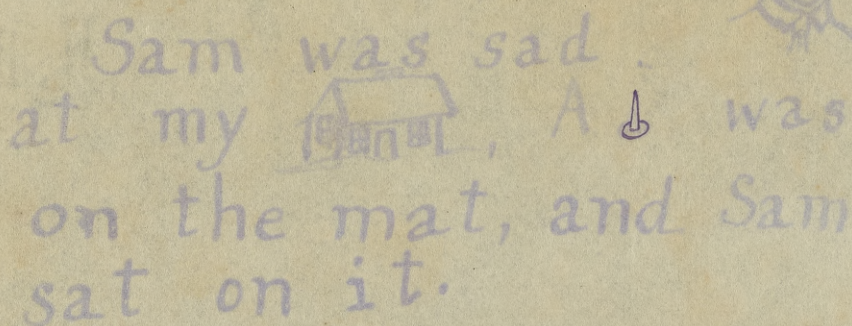 Sam was sad.
at my , A was
on the mat, and Sam
sat on it.